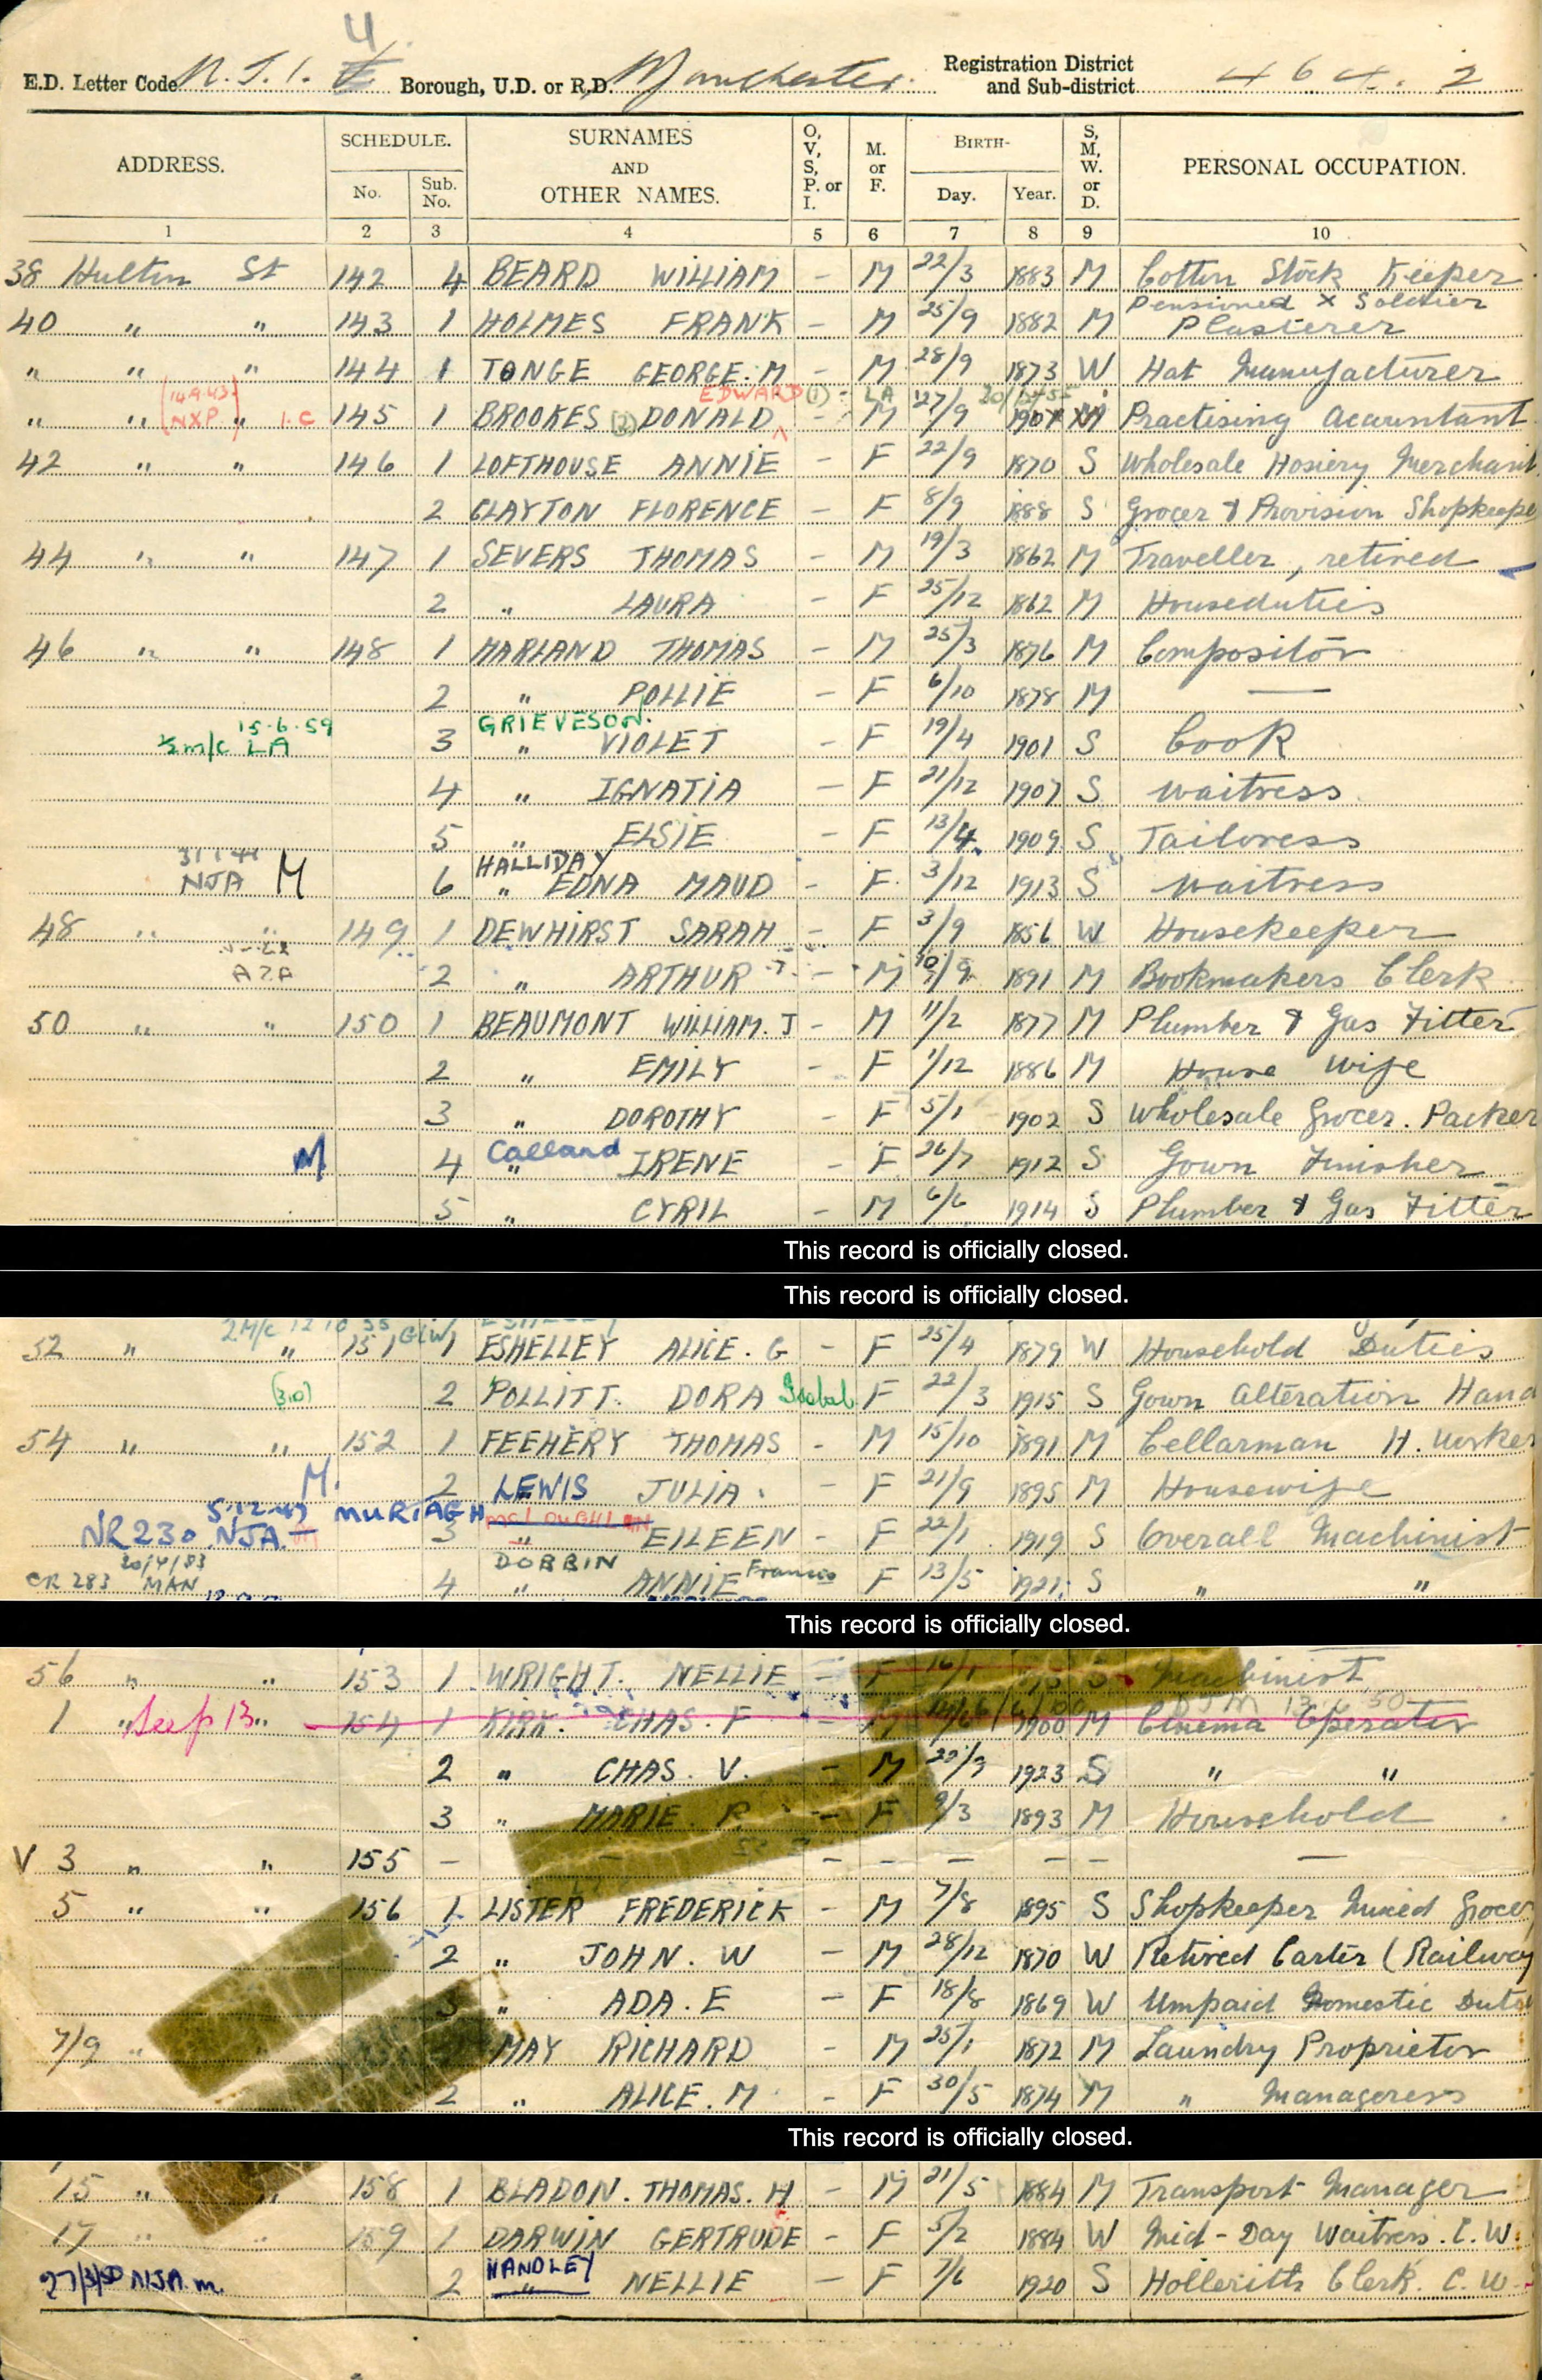 4
E.D. Letter Code N.J.1. Borough, U.D. or R.D. Manchester. Registration District and Sub-district 464.2
ADDRESS. SCHEDULE. No. Sub. No. SURNAMES AND OTHER NAMES. O, V, S, P. or I. M. or F. BIRTH- Day. Year. S, M, W. or D. PERSONAL OCCUPATION.
1 2 3 4 5 6 7 8 9 10
38 Hultin St 142 4 BEARD WILLIAM – M 22/3 1883 M Cotton Stock Keeper
Pensioned X Soldier
40 " " 143 1 HOLMES FRANK – M 25/9 1882 M Plasterer
" " " 144 1 TONGE GEORGE. M – M 28/9 1873 W Hat Manufacturer
(14.9.43) EDWARD (1) LA
" " NXP " 1.C 145 1 BROOKES (2) DONALD – M 27/9 M Practising Acauntant
42 " " 146 1 LOFTHOUSE ANNIE – F 22/9 1870 S Wholesale Hosiery Merchant
2 CLAYTON FLORENCE – F 8/9 1888 S Grocer & Provision Shopkeepe
44 " " 147 1 SEVERS THOMAS – M 19/3 1862 M Traveller, retired
2 " LAURA – F 25/12 1862 M Houseduties
46 " " 148 1 MARLAND THOMAS – M 25/3 1876 M Compositor
2 " POLLIE – F 6/10 1878 M —
15.6.59 GRIEVESON.
½ m/c LA 3 " VIOLET – F 19/4 1901 S Cook
4 " IGNATIA – F 21/12 1907 S Waitress
5 " ELSIE – F 13/4 1909 S Tailoress
HALLIDAY
NJA M 6 " EDNA MAUD – F 3/12 1913 S Waitress
48 " " 149 1 DEWHIRST SARAH – F 3/9 1856 W Housekeeper
2 " ARTHUR – M 1891 M Bookmakers Clerk
50 " " 150 1 BEAUMONT WILLIAM. J – M 11/2 1877 M Plumber & Gas Fitter
2 " EMILY – F 1/12 1886 M House Wife
3 " DOROTHY – F 5/1 1902 S Wholesale Grocer. Packer
Calland
M 4 " IRENE – F 26/7 1912 S Gown Finisher
5 " CYRIL – M 6/6 1914 S Plumber & Gas Fitter
This record is officially closed.
This record is officially closed.
2 M/c 12 10 55 GLW
52 " " 151 1 ESHELLEY ALICE. G – F 25/4 1879 W Household Duties
(310) 2 POLLITT. DORA Isobel F 22/3 1915 S Gown Alteration Hand
54 " " 152 1 FEEHERY THOMAS – M 15/10 1891 M Cellarman H. Worker
M. 2 LEWIS JULIA. – F 21/9 1895 M Housewife
5.12.47 MURTAGH McLOUGHLIN
NR230 NJA 3 " EILEEN – F 22/1 1919 S Overall Machinist
20/4/83 DOBBIN
CR 283 MAN 4 " ANNIE Frances F 13/5 1921 S " "
This record is officially closed.
56 " " 153 1 WRIGHT. NELLIE – F 16/1 S Machinist
1 " See p 13 " 154 1 KIRK. CHAS. F – M 1900 M Cinema Operator
2 " CHAS. V. – M 1923 S " "
3 " MARIE. R – F 9/3 1893 M Household
V 3 " " 155 – – – – – – —
5 " " 156 1 LISTER FREDERICK – M 7/8 1895 S Shopkeeper Mixed Grocer
2 " JOHN. W – M 28/12 1870 W Retired Carter (Railway
3 " ADA. E – F 18/8 1869 W Unpaid Domestic Duts
7/9 " MAY RICHARD – M 25/1 1872 M Laundry Proprietor
2 " ALICE. M – F 30/5 1874 M " Manageress
This record is officially closed.
15 " " 158 1 BLADON. THOMAS. H – M 21/5 1884 M Transport Manager
17 " " 159 1 DARWIN GERTRUDE – F 5/2 1884 W Mid-Day Waitress. C.W.
HANDLEY
27/3/50 NJA. m. 2 " NELLIE – F 7/6 1920 S Hollerith Clerk. C.W.